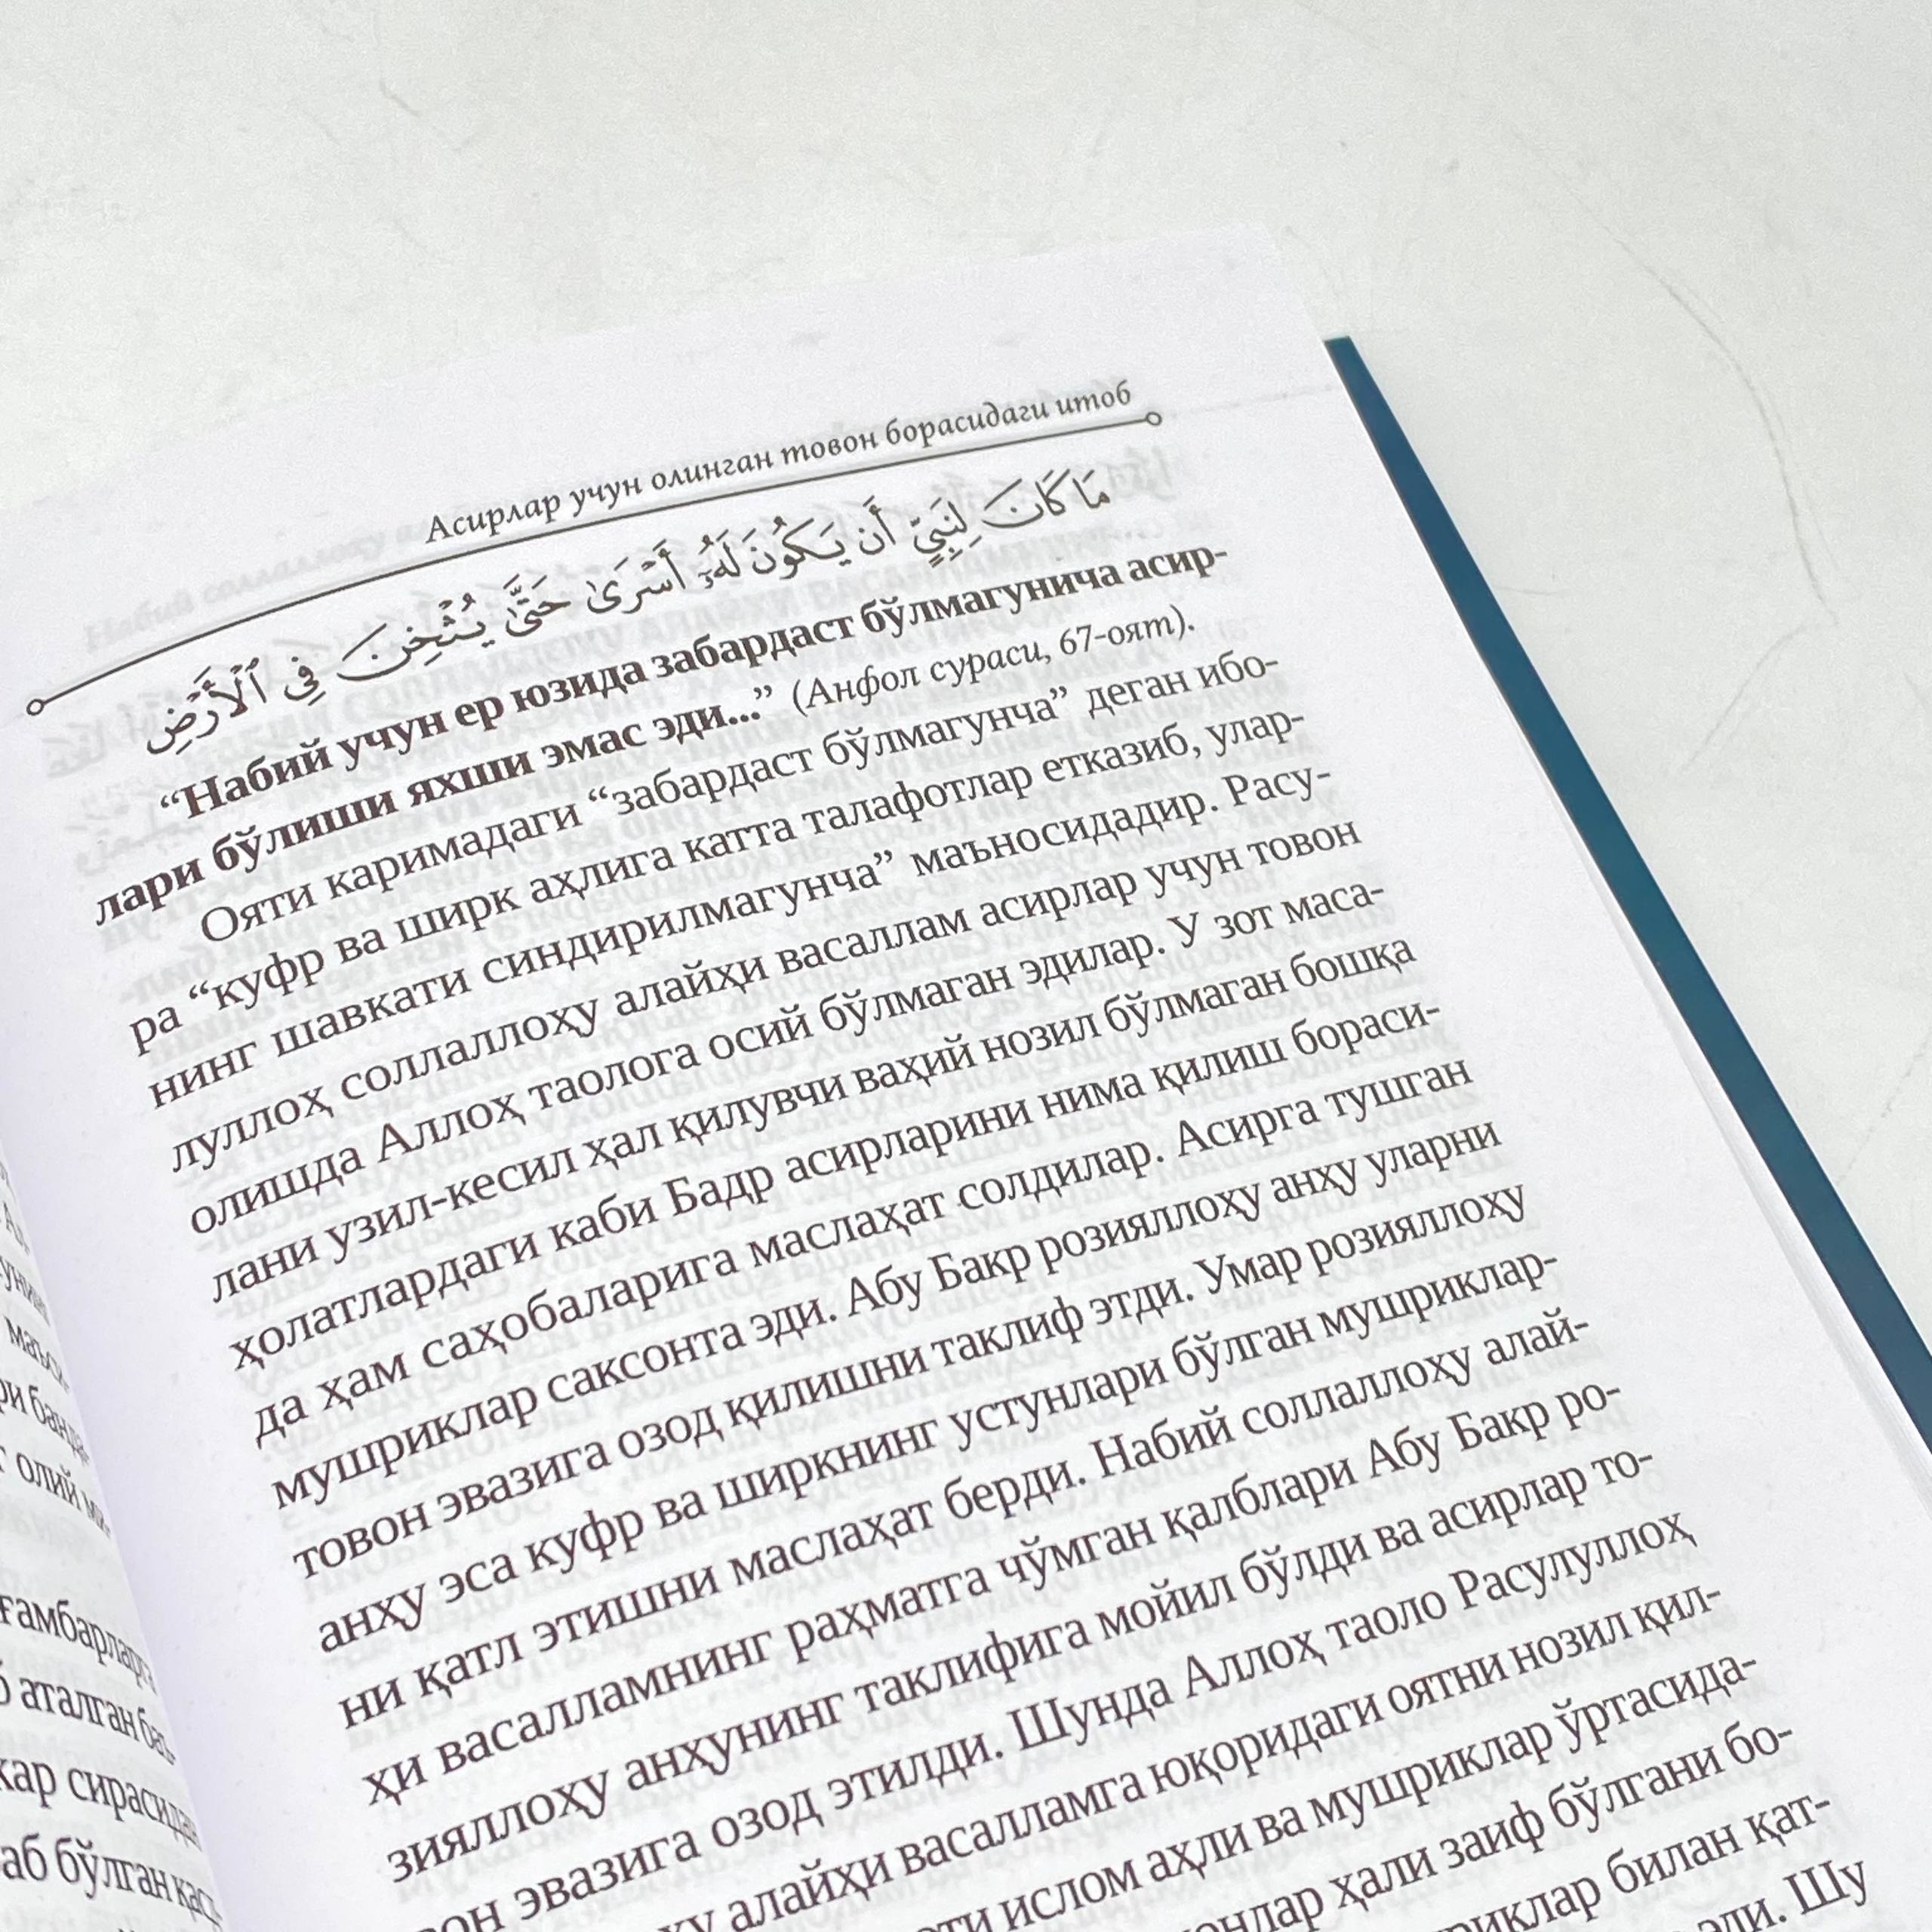 Асирлар учун олинган товон борасидаги итоб
مَا كَانَ لِنَبِيٍّ أَن يَكُونَ لَهُۥٓ أَسۡرَىٰ حَتَّىٰ يُثۡخِنَ فِي ٱلۡأَرۡضِ
“Набий учун ер юзида забардаст бўлмагунича асир-
лари бўлиши яхши эмас эди...” (Анфол сураси, 67-оят).
Ояти каримадаги “забардаст бўлмагунча” деган ибо-
ра “куфр ва ширк аҳлига катта талафотлар етказиб, улар-
нинг шавкати синдирилмагунча” маъносидадир. Расу-
луллоҳ соллаллоҳу алайҳи васаллам асирлар учун товон
олишда Аллоҳ таолога осий бўлмаган эдилар. У зот маса-
лани узил-кесил ҳал қилувчи ваҳий нозил бўлмаган бошқа
ҳолатлардаги каби Бадр асирларини нима қилиш бораси-
да ҳам саҳобаларига маслаҳат солдилар. Асирга тушган
мушриклар саксонта эди. Абу Бакр розияллоҳу анҳу уларни
товон эвазига озод қилишни таклиф этди. Умар розияллоҳу
анҳу эса куфр ва ширкнинг устунлари бўлган мушриклар-
ни қатл этишни маслаҳат берди. Набий соллаллоҳу алай-
ҳи васалламнинг раҳматга чўмган қалблари Абу Бакр ро-
зияллоҳу анҳунинг таклифига мойил бўлди ва асирлар то-
вон эвазига озод этилди. Шунда Аллоҳ таоло Расулуллоҳ
алайҳи васалламга юқоридаги оятни нозил қил-
ислом аҳли ва мушриклар ўртасида-
ҳали заиф бўлгани бо-
билан қат-
эди. Шу
маъси-
олий
ғамбарларга
аталган
сирасидан
бўлган